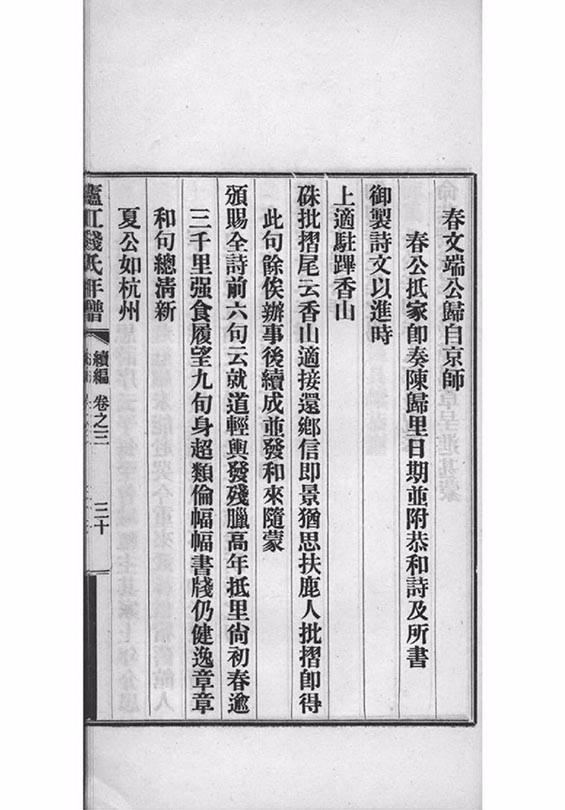 春文端公歸自京師
春公抵家卽奏陳歸里日期並附恭和詩及所書
御製詩文以進時
上適駐蹕香山
硃批摺尾云香山適接還鄉信即景猶思扶鹿人批摺卽得
此句餘俟辦事後續成並發和來隨蒙
頒賜全詩前六句云就道輕輿發殘臘高年抵里尙初春逾
三千里强食履望九旬身超類倫幅幅書牋仍健逸章章
和句總淸新
夏公如杭州
廬江錢氏年譜
續編
卷之三
三十